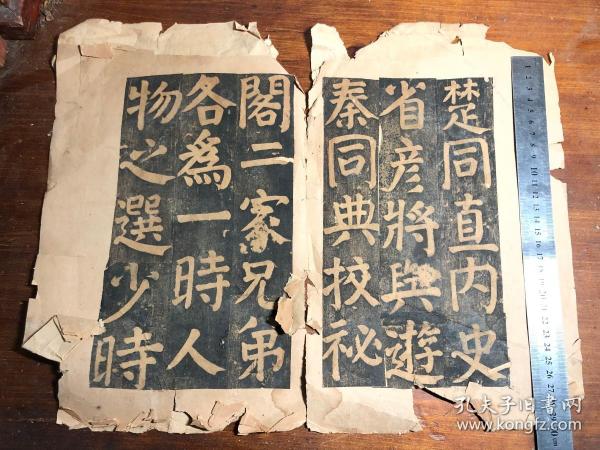 楚同直内史
省彦將與遊
秦同典挍祕
閣二家兄弟
各爲一時人
物之選少時
孔夫子旧书网
www.kongfz.com